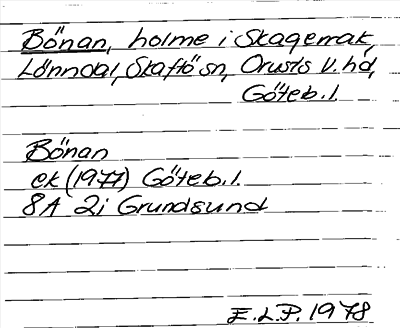 Bönan, holme i Skagerrak,
Lönndal, Skaftö sn, Orusts V. hd,
Göteb. l.
Bönan
ek (1977) Göteb. l.
8A 2i Grundsund
E.L.P. 1978